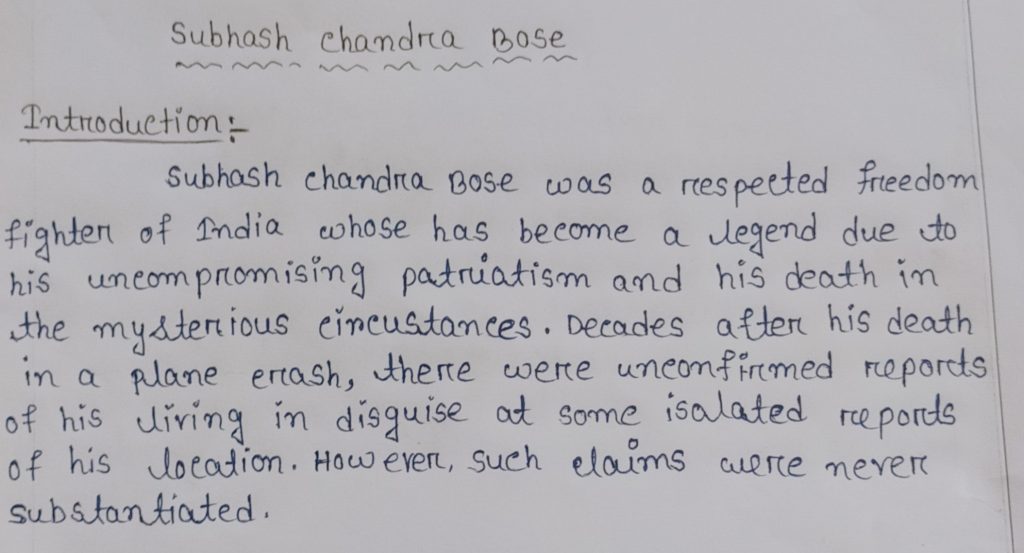 Subhash Chandra Bose
Introduction :-
Subhash Chandra Bose was a respected freedom
fighter of India whose has become a legend due to
his uncompromising patriatism and his death in
the mysterious circustances. Decades after his death
in a plane crash, there were unconfirmed reports
of his living in disguise at some isalated reports
of his location. However, such claims were never
substantiated.